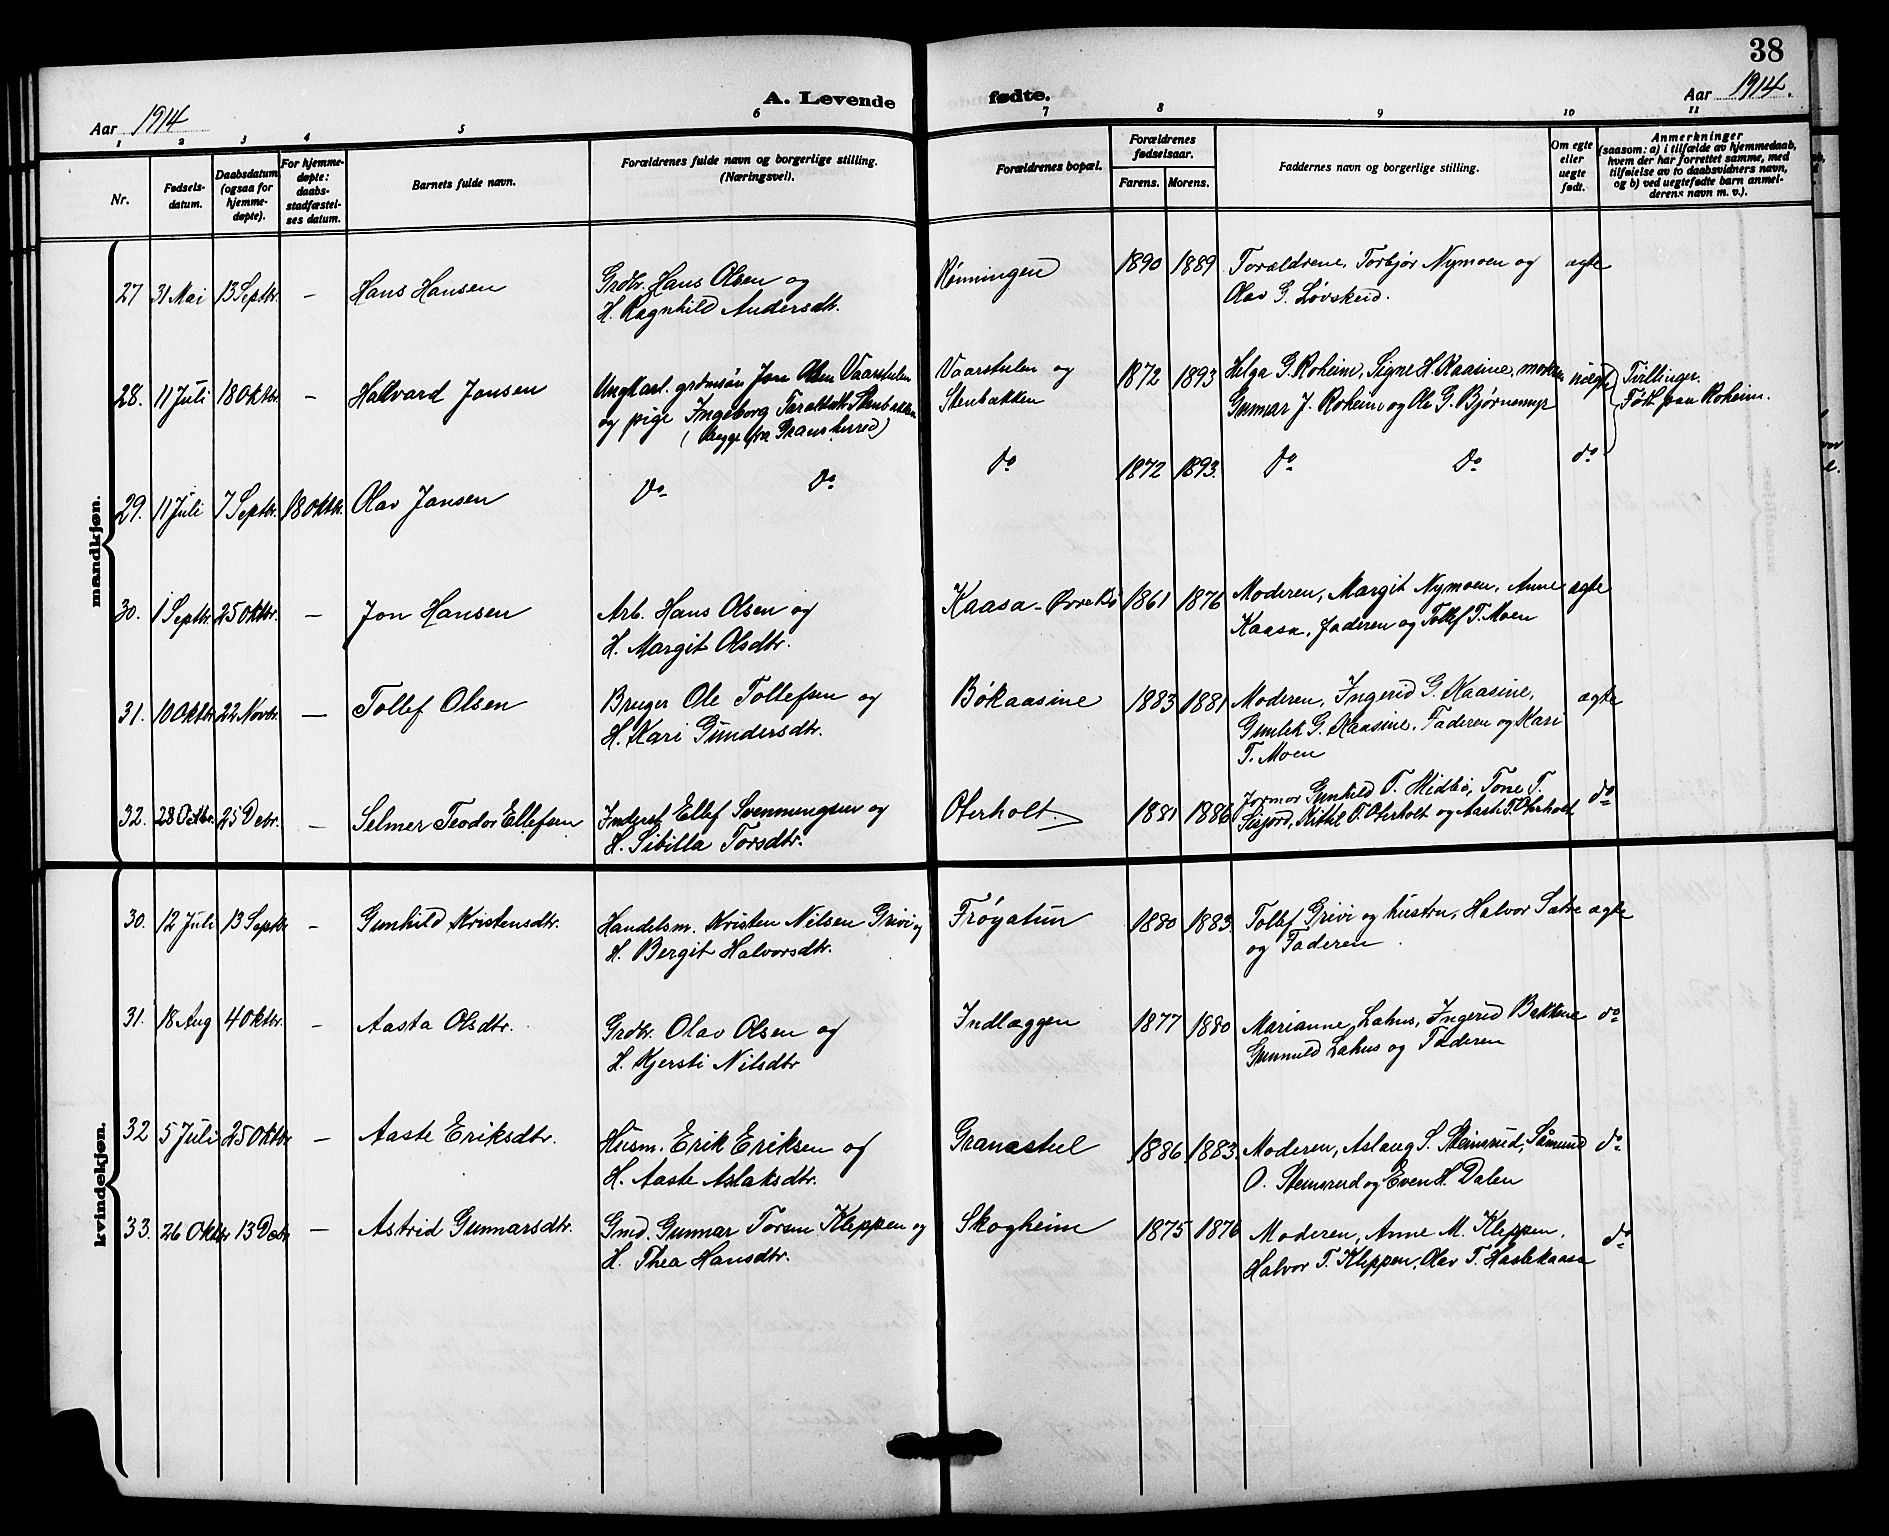 38
A. Levende fødte.
Aar 1914
Aar 1914.
1 2 3 4 5 6 7 8 9 10 11
Nr.
Fødsels-
datum.
Daabsdatum
(ogsaa for
hjemme-
døpte).
For hjemme-
døpte:
daabs-
stadfæstel-
ses datum.
Barnets fulde navn.
Forældrenes fulde navn og borgerlige stilling.
(Næringsvei).
Forældrenes bopæl.
Forældrenes
fødselsaar.
Farens. Morens.
Faddernes navn og borgerlige stilling.
Om egte
eller
uegte
født.
Anmerkninger
(saasom: a) i tilfælde av hjemmedaab,
hvem der har forrettet samme, med
tilføielse av to daabsvidners navn,
og b) ved uegtefødte barn anmel-
derens navn m. v.).
mandkjøn.
27 31 Mai 13 Septbr. – Hans Hansen
Grdbr. Hans Olsen og
H. Ragnhild Andersdtr.
Rønningen 1890 1889
Forældrene, Torbjør Nymoen og
Olav G. Løvskeid.
ægte
28. 11 Juli 18 Oktbr. – Halvard Jonsen
Ungkarl. grdmsøn Jon Olsen Vaarstulen
og pige Ingeborg Taraldsdtr. Stenbakken
(begge fra Gransherred)
Vaarstulen og
Stenbakken
1872 1893
Helga G. Roheim, Signe H. Kaasine, moderen
Gunnar J. Roheim og Ole G. Bjørnemyr
uægte
Tvillinger.
Født paa Roheim.
29. 11 Juli 7 Septbr. 18 Oktbr. Olav Jonsen
Do Do
do 1872 1893. Do Do do
30. 1 Septbr. 25 Oktbr. – Jon Hansen
Arb. Hans Olsen og
H. Margit Olsdtr.
Kaasa - Øvrebø 1861 1876
Moderen, Margit Nymoen, Anne
Kaasa, faderen og Tollef T. Moen
ægte
31. 10 Oktbr. 22 Novbr. – Tollef Olsen
Bruger Ole Tollefsen og
H. Kari Gundersdtr.
Bøkaasine 1883 1881
Moderen, Ingerid G. Kaasine,
Gunlek G. Kaasine, Faderen og Kari
T. Moen
ægte
32. 28 Octbr. 25 Debr. – Selmer Teodor Ellefsen
Inderst Ellef Svenningsen og
H. Sibilla Torsdtr.
Oterholt. 1881 1886
Jormor Gunhild O. Midbø, Tone T.
Sisjord, Kittil O. Oterholt og Aaste T. Oterholt
do
kvindekjøn.
30. 12 Juli 13 Septbr – Gunhild Kristensdtr.
Handelsm. Kristen Nilsen Grivi og
H. Bergit Halvorsdtr.
Frøyatun 1880 1883
Tollef Grivi og hustru, Halvor Satre
og Faderen.
ægte
31. 18 Aug 4 Oktbr. – Aasta Olsdtr.
Grdbr. Olav Olsen og
H. Kjersti Nilsdtr
Indlæggen 1877 1880
Marianne Lahus, Ingerid Bakkene
Gunnuld Lahus og Faderen
do
32 5 Juli 25 Oktbr – Aaste Eriksdtr.
Husm. Erik Eriksen og
H. Aaste Aslaksdtr.
Granastul 1886 1883.
Moderen, Aslaug S. Steinsrud, Såmund
O. Steinsrud og Even H. Dalen
do
33. 26 Oktbr 13 Debr. – Astrid Gunnarsdtr.
Gmd. Gunnar Torsen Kleppen og
H. Thea Hansdtr.
Skogheim 1875 1876
Moderen, Anne M. Kleppen,
Halvor T. Kleppen, Olav T. Haslekaasa
do